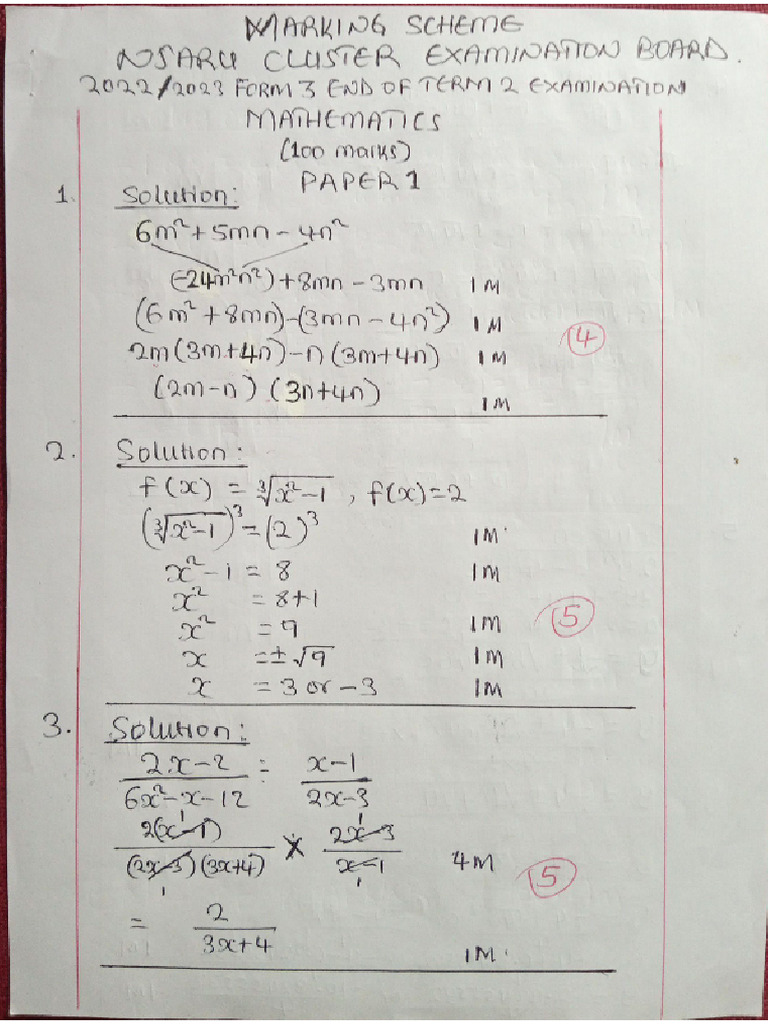 MARKING SCHEME
NSARU CLUSTER EXAMINATION BOARD.
2022/2023 FORM 3 END OF TERM 2 EXAMINATION
MATHEMATICS
(100 marks)
PAPER 1
1. Solution:
6m² + 5mn - 4n²
(-24m²n²) + 8mn - 3mn 1M
(6m² + 8mn) - (3mn - 4n²) 1M
2m(3m+4n) - n(3m+4n) 1M
④
(2m-n) (3n+4n) 1M
2. Solution:
f(x) = ∛(x²-1) , f(x) = 2
(∛(x²-1))³ = (2)³ 1M
x² - 1 = 8 1M
x² = 8+1
x² = 9 1M
⑤
x = ±√9 1M
x = 3 or -3 1M
3. Solution:
(2x-2)/(6x²-x-12) ÷ (x-1)/(2x-3)
2(x-1)/((2x-3)(3x+4)) × (2x-3)/(x-1) 4M
⑤
= 2/(3x+4) 1M